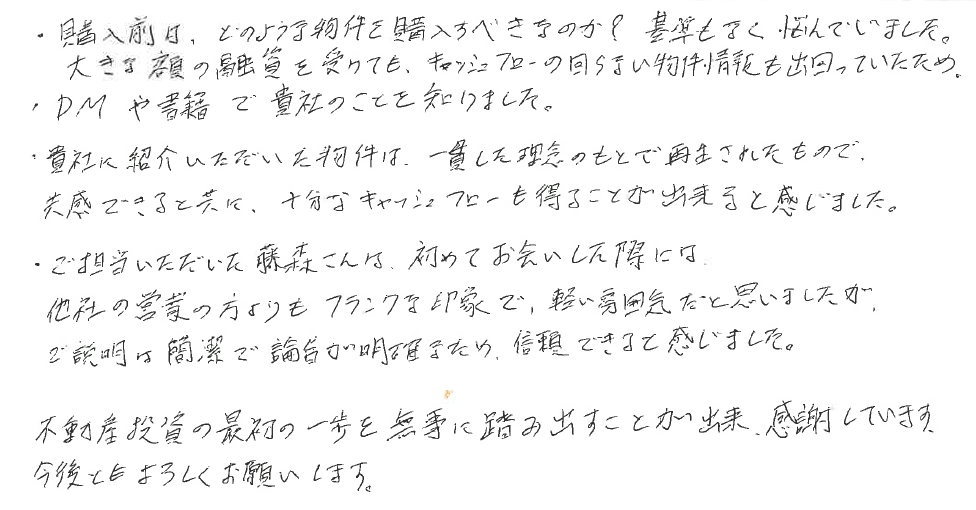 ・購入前は、どのような物件を購入すべきなのか? 基準もなく悩んでいました。
大きな額の融資を受けても、キャッシュフローの回らない物件情報も出回っていたため。
・DMや書籍で貴社のことを知りました。
・貴社に紹介いただいた物件は、一貫した理念のもとで再生されたもので、
共感できると共に、十分なキャッシュフローも得ることが出来ると感じました。
・ご担当いただいた藤森さんは、初めてお会いした際には、
他社の営業の方よりもフランクな印象で、軽い雰囲気だと思いましたが、
ご説明は簡潔で論旨が明確なため、信頼できると感じました。
不動産投資の最初の一歩を無事に踏み出すことが出来、感謝しています。
今後ともよろしくお願いします。